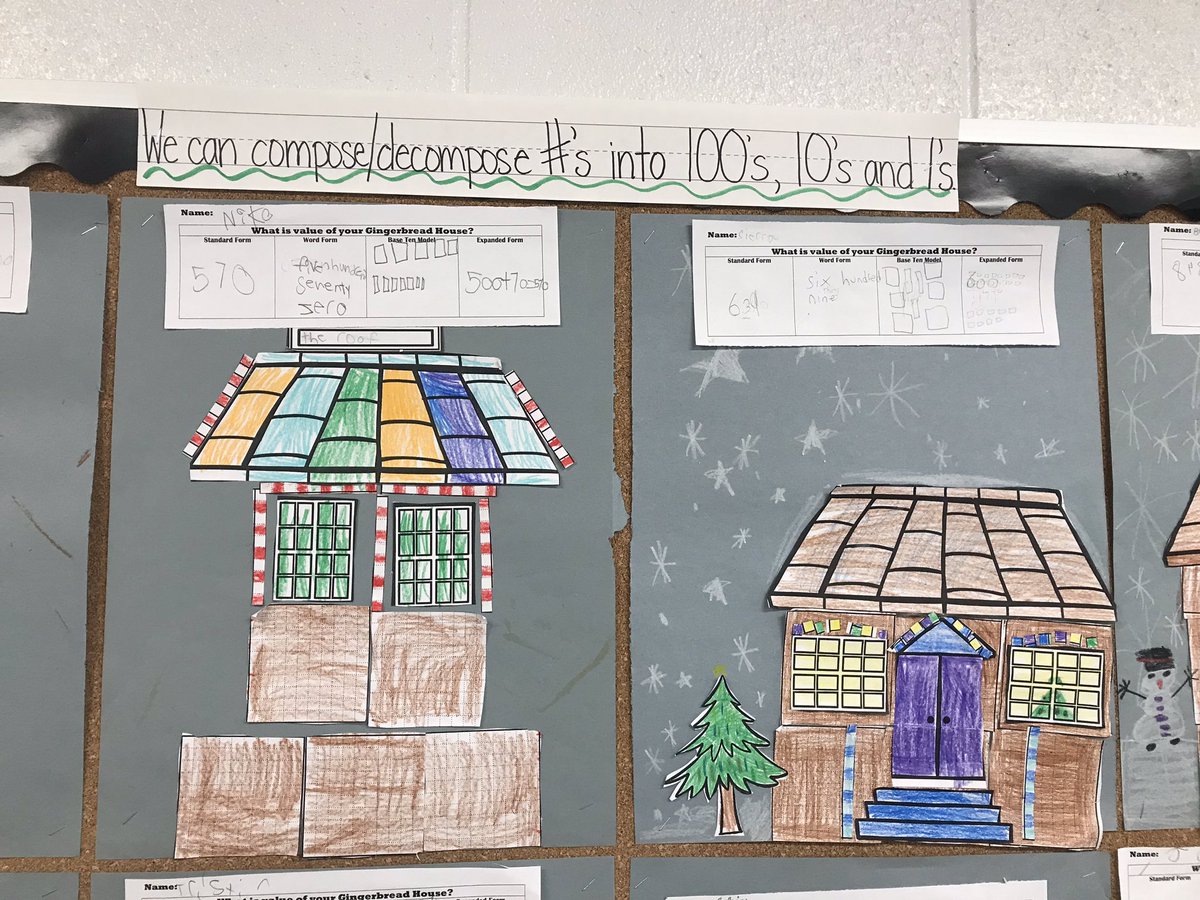 We can compose/decompose #'s into 100's, 10's and 1's.
Name: Nika
What is value of your Gingerbread House?
Standard Form Word Form Base Ten Model Expanded Form
570
five hundred
seventy
zero
500+70=570
the roof
Name: Pierra
What is value of your Gingerbread House?
Standard Form Word Form Base Ten Model Expanded Form
six hundred
nine
Name:
Standard Form
Name: Tristin
What is value of your Gingerbread House?
Name:
Standard Form